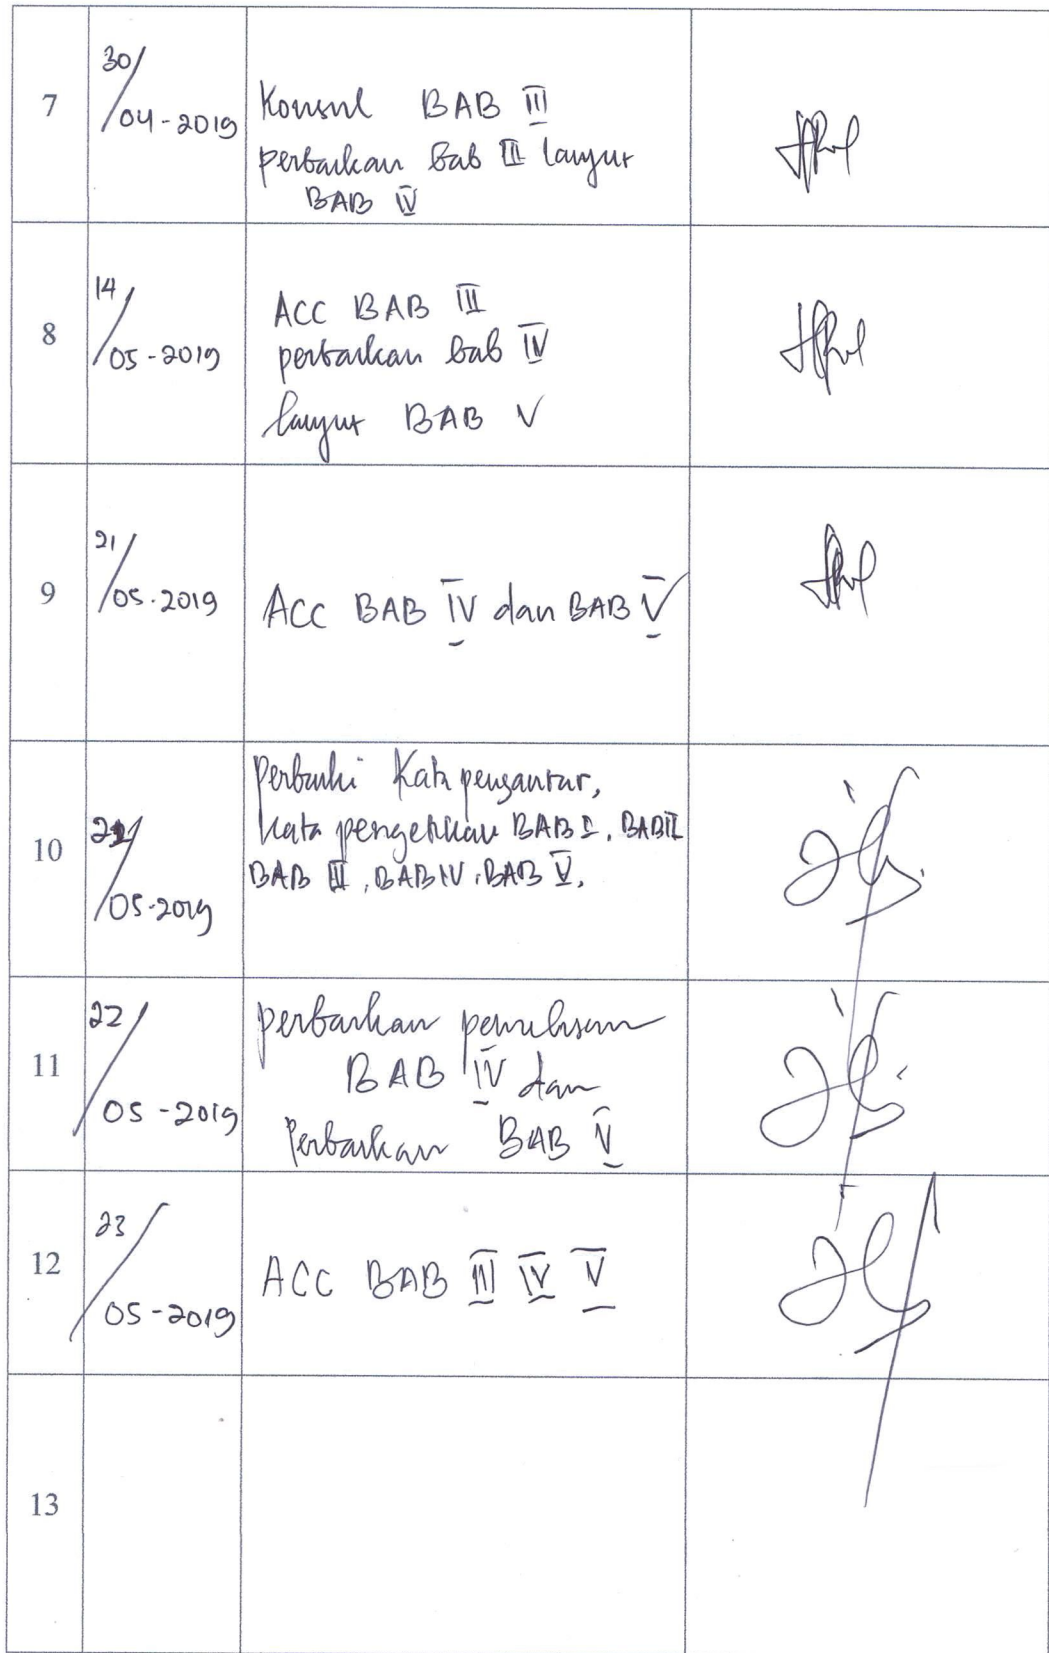 7
30/
04-2019
Konsul BAB III
perbaikan bab III lanjut
BAB IV
8
14/
05-2019
ACC BAB III
perbaikan bab IV
lanjut BAB V
9
21/
05.2019
ACC BAB IV dan BAB V
10
/05-2019
Perbaiki Kata pengantar,
kata pengetikan BAB I, BAB II
BAB III, BAB IV, BAB V.
11
22/
05-2019
perbaikan penulisan
BAB IV dan
Perbaikan BAB V
12
23/
05-2019
ACC BAB III IV V
13